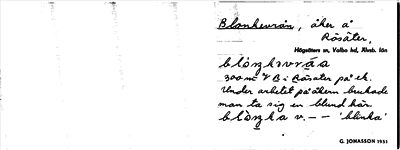 Blonkevrån, åker å
Rösäter,
Högsäters sn, Valbo hd, Älvsb. län
300 m V B i Rösäter på ek.
Under arbetet på åkern brukade
man ta sig en blund här
v. – – 'blinka'
G. JONASSON 1931